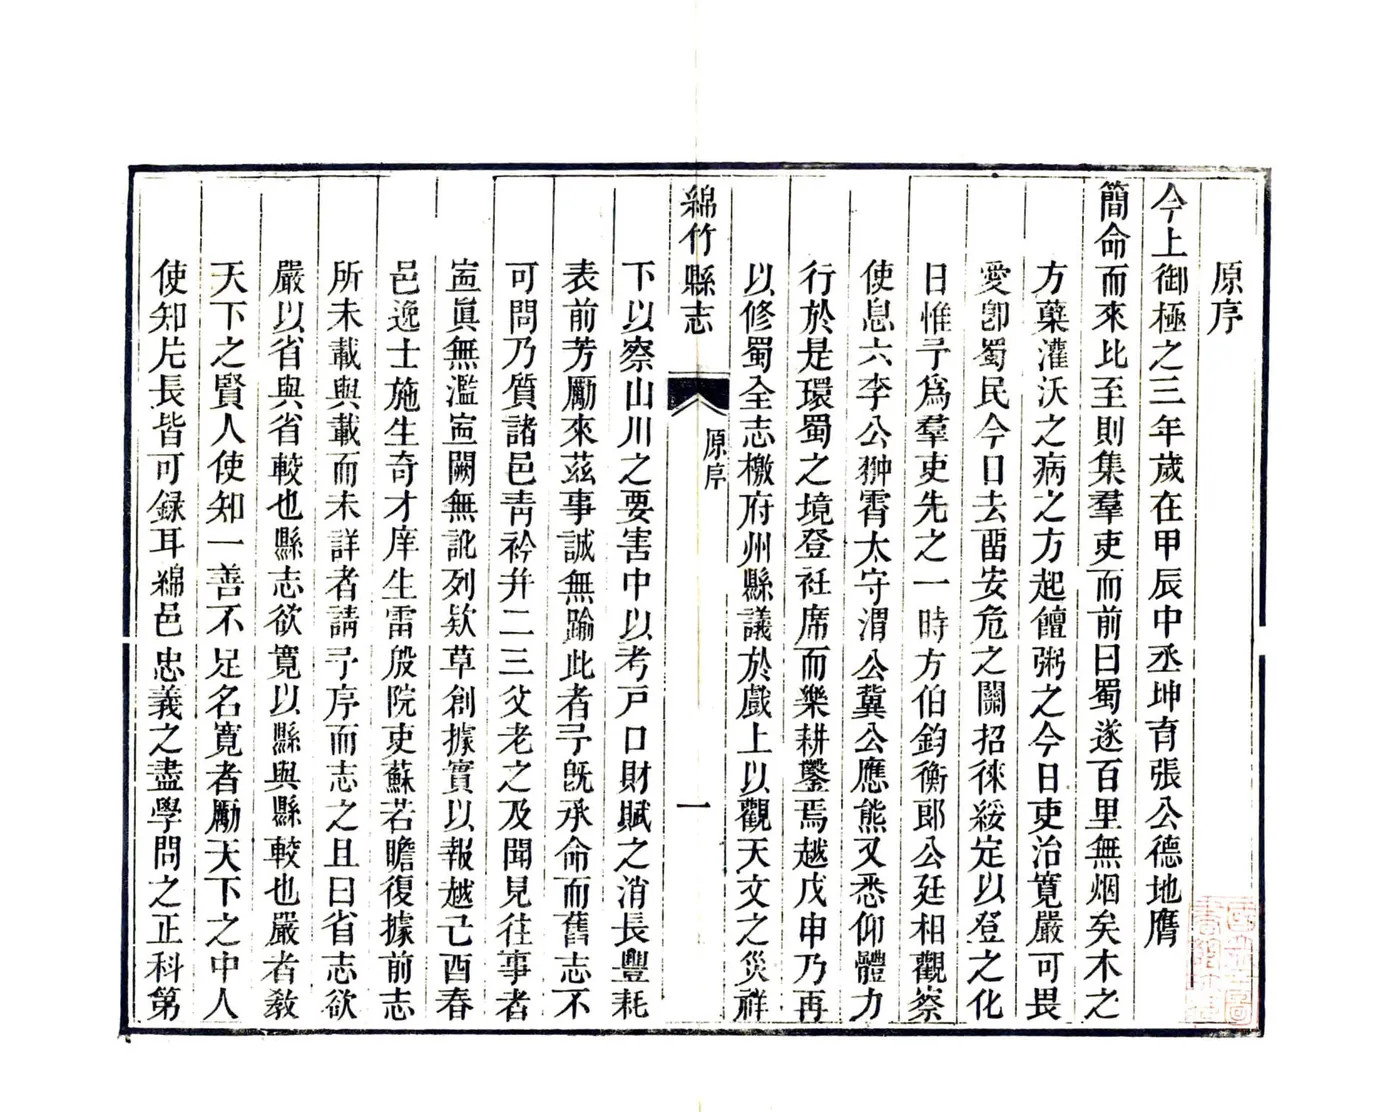 原序
今上御極之三年歲在甲辰中丞坤育張公德地膺
簡命而來比至則集羣吏而前曰蜀遂百里無烟矣木之
方蘖灌沃之病之方起饘粥之今日吏治寬嚴可畏
愛卽蜀民今日去畱安危之關招徠綏定以登之化
日惟予爲羣吏先之一時方伯鈞衡郎公廷相觀察
使息六李公翀霄太守渭公冀公應熊又悉仰體力
行於是環蜀之境登衽席而樂耕鑿焉越戊申乃再
以修蜀全志檄府州縣議於戲上以觀天文之災祥
綿竹縣志
原序
一
下以察山川之要害中以考戸口財賦之消長豐耗
表前芳勵來茲事誠無踰此者予旣承命而舊志不
可問乃質諸邑靑衿幷二三父老之及聞見往事者
寍眞無濫寍闕無訛列欵草創據實以報越己酉春
邑逸士施生奇才庠生雷殷院吏蘇若瞻復據前志
所未載與載而未詳者請予序而志之且曰省志欲
嚴以省與省較也縣志欲寬以縣與縣較也嚴者敎
天下之賢人使知一善不足名寬者勵天下之中人
使知片長皆可録耳綿邑忠義之盡學問之正科第